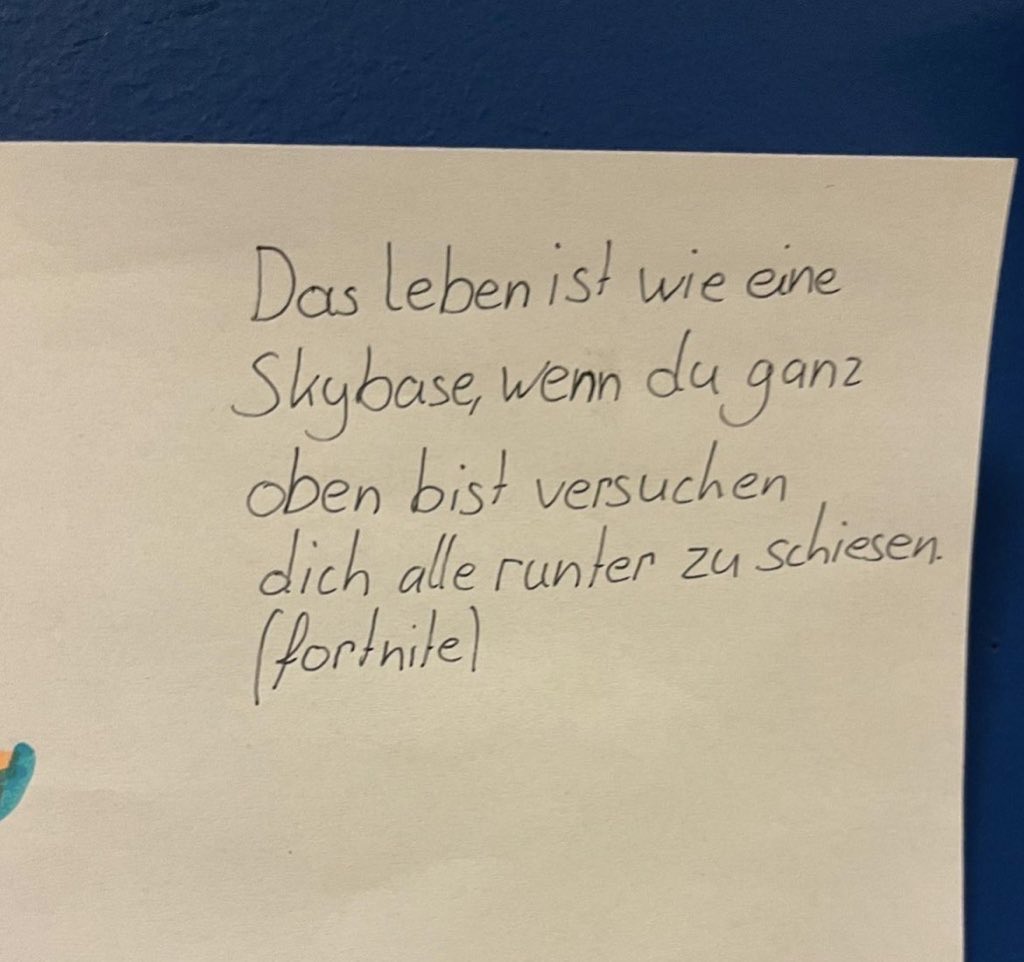 Das leben ist wie eine
Skybase, wenn du ganz
oben bist versuchen
dich alle runter zu schiesen.
(fortnite)